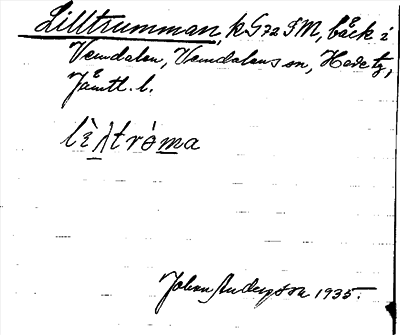 Lilltrumman, k. G72 SM, bäck i
Vemdalen, Vemdalens sn, Härjedalen,
Jämtl. l.
lìltróma
Johan Anderson 1935.